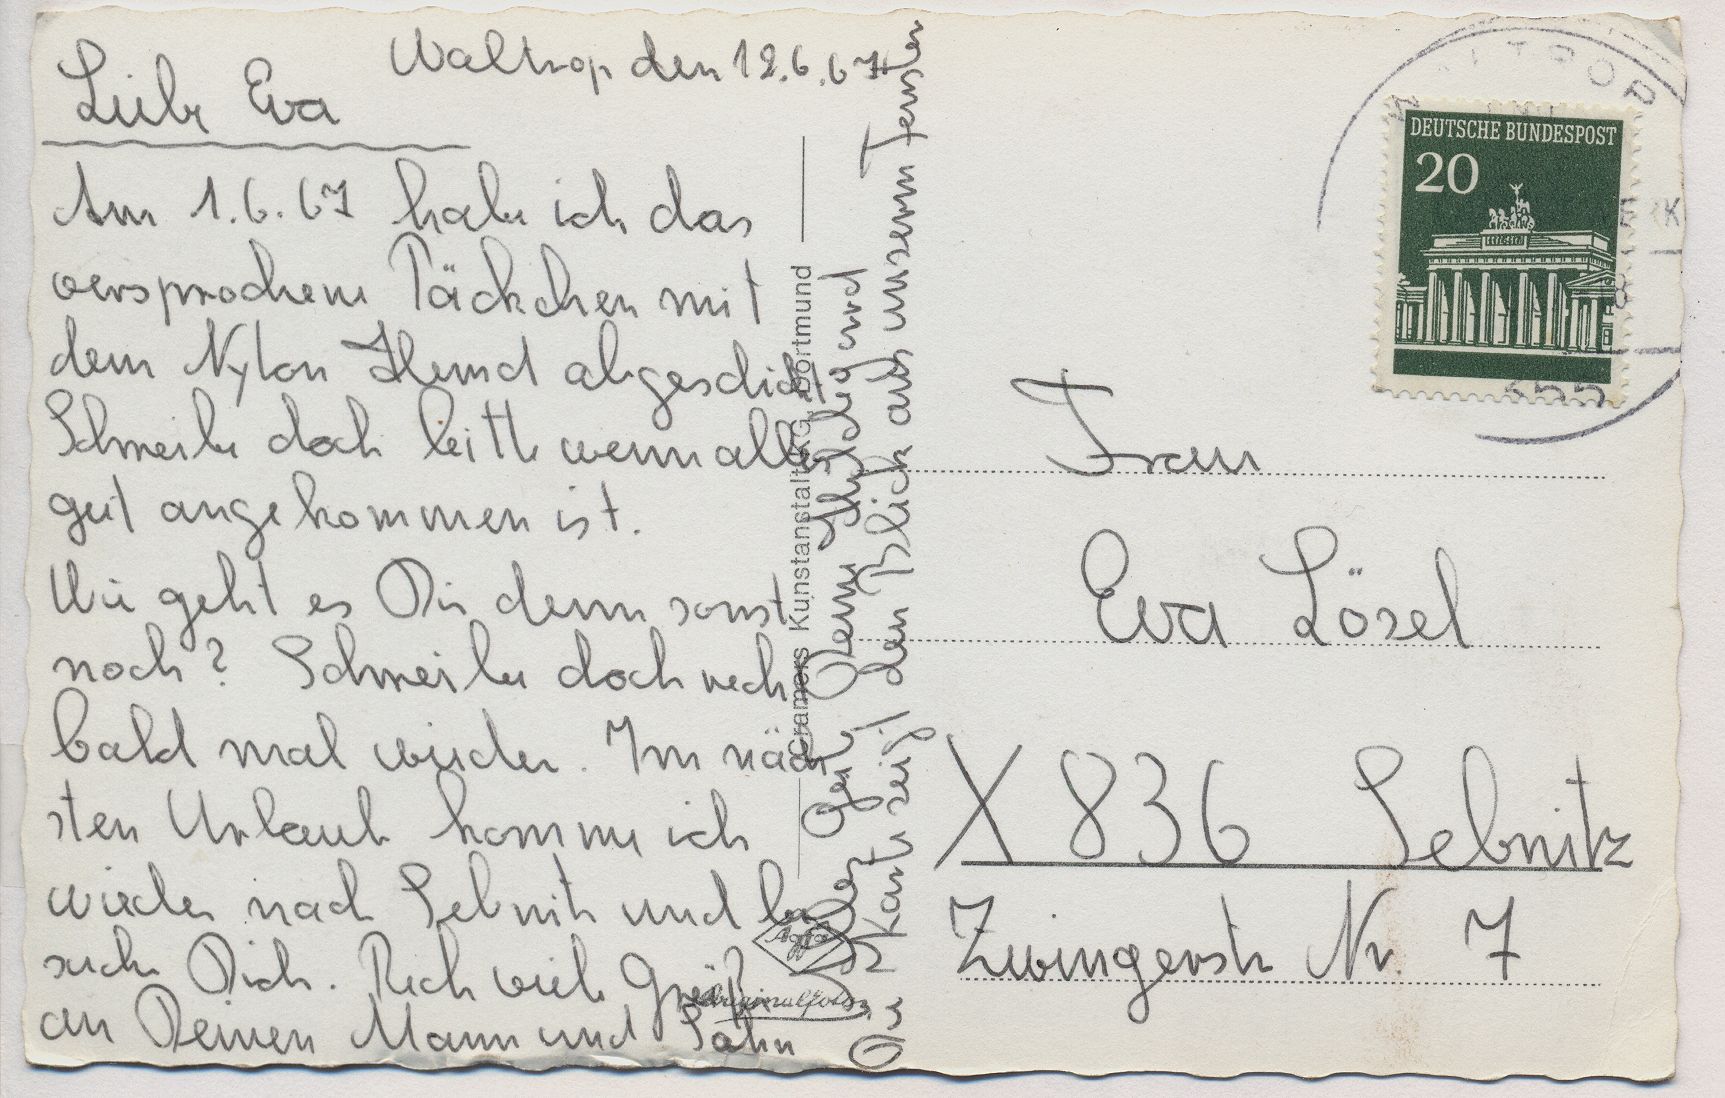 Waltrop den 12.6.67
Liebe Eva
Am 1.6.67 habe ich das
versprochene Päckchen mit
dem Nylon Hemd abgeschickt
Schreibe doch bitte wenn alles
gut angekommen ist.
Wie geht es Dir denn sonst
noch? Schreibe doch recht
bald mal wieder. Im näch
sten Urlaub komme ich
wieder nach Sebnitz und be
suche Dich. Rech viele Grüße
an Deinen Mann und Sohn
Alles Gute Deine und
Die Karte zeigt den Blick aus unserm Fenster
Cramers Kunstanstalt KG, Dortmund
Agfa
Originalfoto
WALTROP
DEUTSCHE BUNDESPOST
20
355
Frau
Eva Lösel
X 836 Sebnitz
Zwingerstr Nr. 7